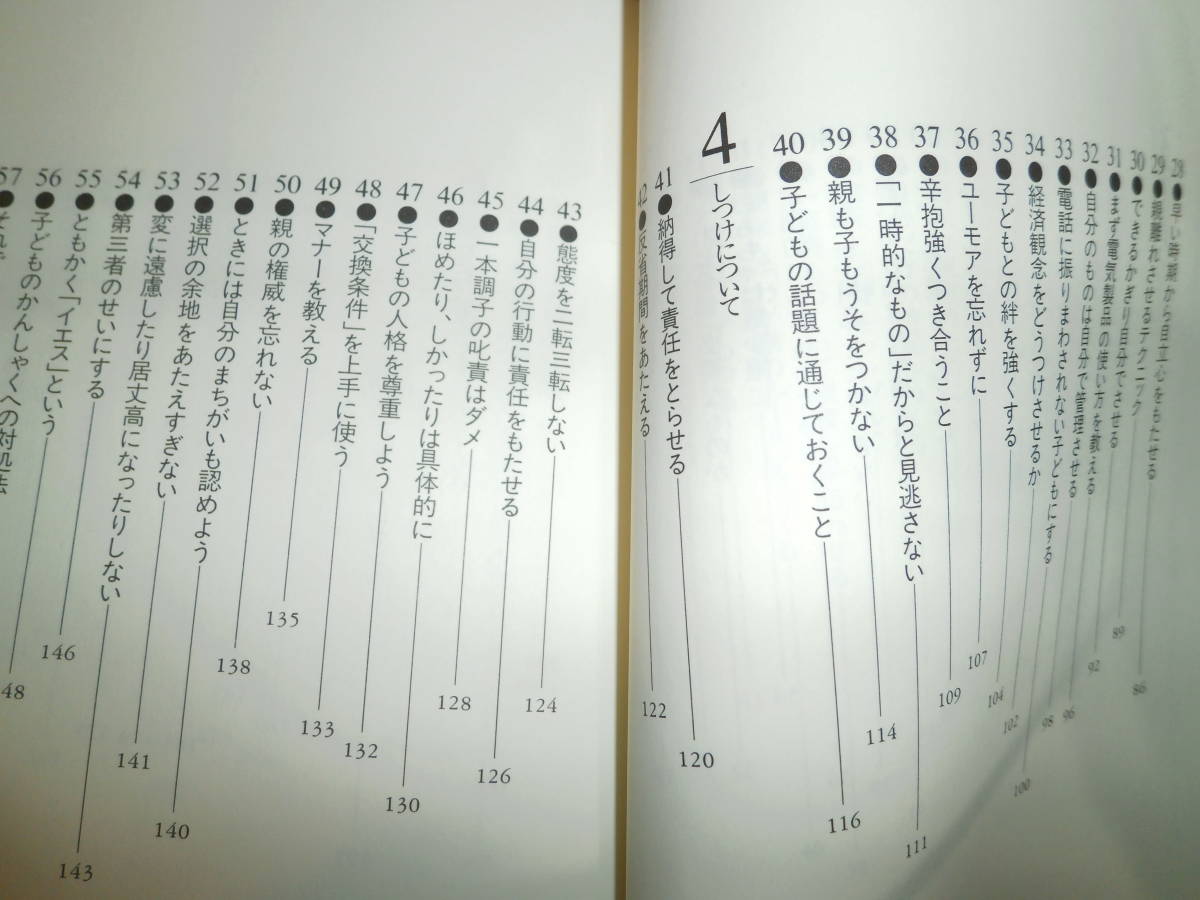 28●早い時期から自立心をもたせる 86
29●親離れさせるテクニック 89
30●できるかぎり自分でさせる 92
31●まず電気製品の使い方を教える 96
32●自分のものは自分で管理させる 98
33●電話に振りまわされない子どもにする 100
34●経済観念をどうつけさせるか 102
35●子どもとの絆を強くする 104
36●ユーモアを忘れずに 107
37●辛抱強くつき合うこと 109
38●「一時的なもの」だからと見逃さない 111
39●親も子もうそをつかない 114
40●子どもの話題に通じておくこと 116
4 しつけについて
41●納得して責任をとらせる 120
42●反省期間をあたえる 122
43●態度を二転三転しない 124
44●自分の行動に責任をもたせる 126
45●一本調子の叱責はダメ 128
46●ほめたり、しかったりは具体的に 130
47●子どもの人格を尊重しよう 132
48●「交換条件」を上手に使う 133
49●マナーを教える 135
50●親の権威を忘れない 138
51●ときには自分のまちがいも認めよう 140
52●選択の余地をあたえすぎない 141
53●変に遠慮したり居丈高になったりしない 143
54●第三者のせいにする 146
55●ともかく「イエス」という 48
56●子どものかんしゃくへの対処法
57●それで